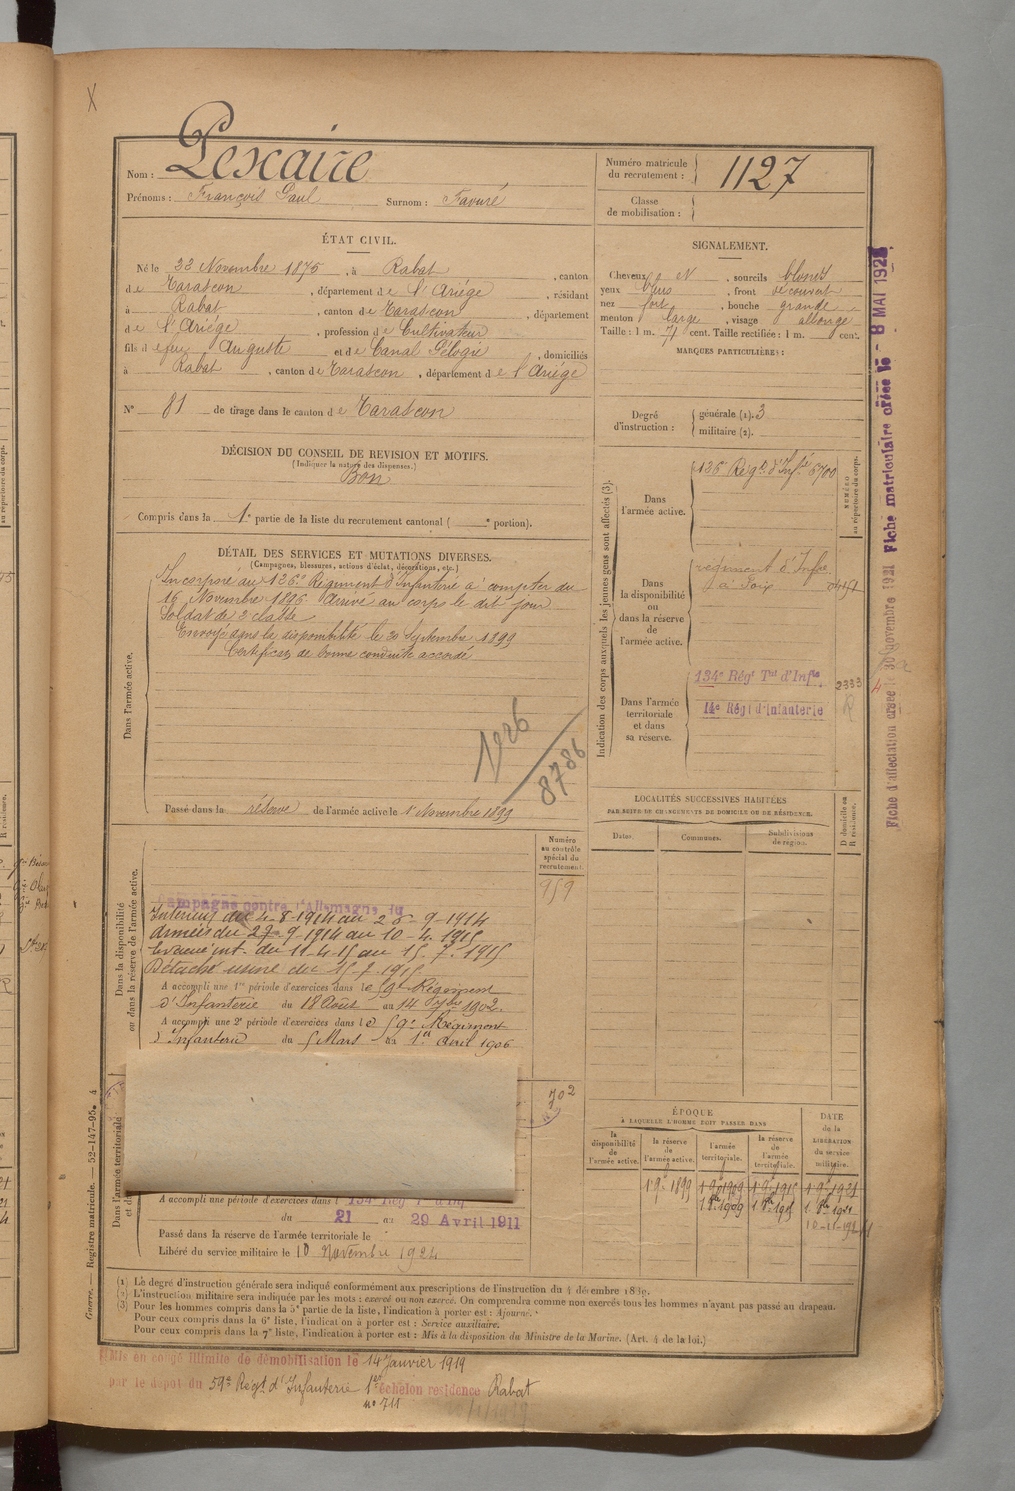 X
Nom : Pexaire
Prénoms : François Paul Surnom : Favuré
Numéro matricule du recrutement : 1127
Classe de mobilisation :
ÉTAT CIVIL.
Né le 22 Novembre 1875, à Rabat, canton
de Tarascon, département de l'Ariége, résidant
à Rabat, canton de Tarascon, département
de l'Ariége, profession de Cultivateur
fils d efeu Auguste et de Canal Pélagie, domiciliés
à Rabat, canton de Tarascon, département de l'Ariége
N° 81 de tirage dans le canton de Tarascon
SIGNALEMENT.
Cheveux et sourcils blonds
yeux bleus, front découvert
nez fort, bouche grande
menton large, visage allongé
Taille : 1 m. 71 cent. Taille rectifiée : 1 m. cent.
MARQUES PARTICULIÈRES :
Degré d'instruction : générale (1). 3
militaire (2).
DÉCISION DU CONSEIL DE REVISION ET MOTIFS.
(Indiquer la nature des dispenses.)
Bon
Compris dans la 1e partie de la liste du recrutement cantonal ( e portion).
DÉTAIL DES SERVICES ET MUTATIONS DIVERSES.
(Campagnes, blessures, actions d'éclat, décorations, etc.)
Dans l'armée active.
Incorporé au 126e Régiment d'Infanterie à compter du
16 Novembre 1896. Arrivé au corps le dit jour
Soldat de 2e classe
Envoyé dans la disponibilité le 20 Septembre 1899
Certificat de bonne conduite accordé
1926
8786
Passé dans la réserve de l'armée active le 1er Novembre 1899
Indication des corps auxquels les jeunes gens sont affectés (3).
NUMÉRO au répertoire du corps.
Dans l'armée active.
126e Régt d'Infie 6700
Dans la disponibilité ou dans la réserve de l'armée active.
régiment d'Infie
à Foix
Dans l'armée territoriale et dans sa réserve.
134e Régt Tal d'Infie
2333
14e Régt d'Infanterie
LOCALITÉS SUCCESSIVES HABITÉES
PAR SUITE DE CHANGEMENTS DE DOMICILE OU DE RÉSIDENCE.
Dates.
Communes.
Subdivisions de région.
D domicile ou R résidence.
Numéro au contrôle spécial du recrutement.
959
Dans la disponibilité ou dans la réserve de l'armée active.
Campagne contre l'Allemagne du
Intérieur du 4-8-1914 au 26-9-1914
Armées du 27-9-1914 au 10-4-1915
Evacué int. du 11-4-15 au 15.7.1915
Détaché usine du 15-7-1915
A accompli une 1re période d'exercices dans le 59e Régiment
d'Infanterie du 18 Août au 14 7bre 1902
A accompli une 2e période d'exercices dans le 59e Régiment
d'Infanterie du 5 Mars au 1er Avril 1906
702
Dans l'armée territoriale
A accompli une période d'exercices dans l 134e Rég
du 21 au 29 Avril 1911
Passé dans la réserve de l'armée territoriale le
Libéré du service militaire le 10 Novembre 1924
ÉPOQUE
À LAQUELLE L'HOMME DOIT PASSER DANS
la disponibilité de l'armée active.
la réserve de l'armée active.
l'armée territoriale.
la réserve de l'armée territoriale.
DATE de la LIBÉRATION du service militaire.
1 9e 1899 1 9e 1909 1 9e 1915 1 9e 1921
1 8e 1909 1 8e 1915 1 8e 1921
(1) Le degré d'instruction générale sera indiqué conformément aux prescriptions de l'instruction du 4 décembre 1889.
(2) L'instruction militaire sera indiquée par les mots : exercé ou non exercé. On comprendra comme non exercés tous les hommes n'ayant pas passé au drapeau.
(3) Pour les hommes compris dans la 5e partie de la liste, l'indication à porter est : Ajourné.
Pour ceux compris dans la 6e liste, l'indication à porter est : Service auxiliaire.
Pour ceux compris dans la 7e liste, l'indication à porter est : Mis à la disposition du Ministre de la Marine. (Art. 4 de la loi.)
Mis en congé illimité de démobilisation le 14 Janvier 1919
par le dépôt du 59e Régt d'Infanterie 1er échelon résidence Rabat
n° 711
Guerre. — Registre matricule. — 52-147-95. 4
Fiche d'affectation créée le 30 novembre 1921 Fiche matriculaire créée le - 8 MAI 1928